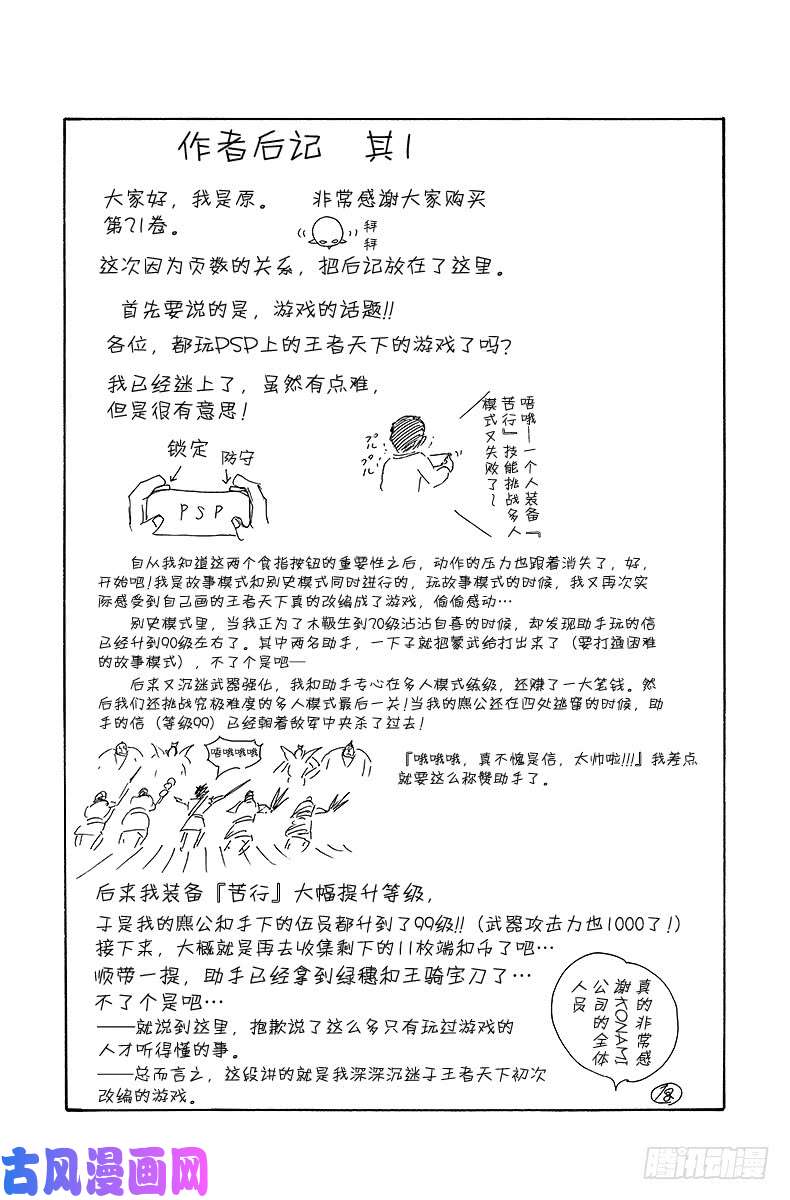 作者后记 其1
大家好，我是原。 非常感谢大家购买
第21卷。
拜
拜
这次因为页数的关系，把后记放在了这里。
首先要说的是，游戏的话题!!
各位，都玩PSP上的王者天下的游戏了吗?
我已经迷上了，虽然有点难，
但是很有意思!
锁定
防守
PSP
プル
プル
唔哦—一个人装备『
苦行』技能挑战多人
模式又失败了~
自从我知道这两个食指按钮的重要性之后，动作的压力也跟着消失了，好，
开始吧!我是故事模式和别史模式同时进行的，玩故事模式的时候，我又再次实
际感受到自己画的王者天下真的改编成了游戏，偷偷感动…
别史模式里，当我正为了木瓾生到70级沾沾自喜的时候，却发现助手玩的信
已经升到90级左右了。其中两名助手，一下子就把蒙武给打出来了（要打通困难
的故事模式），不了个是吧—
后来又沉迷武器强化，我和助手专心在多人模式练级，还赚了一大笔钱。然
后我们还挑战究极难度的多人模式最后一关!当我的麃公还在四处逃窜的时候，助
手的信（等级99）已经朝着敌军中央杀了过去!
唔哦哦哦
『哦哦哦，真不愧是信，太帅啦!!!』我差点
就要这么称赞助手了。
后来我装备『苦行』大幅提升等级，
于是我的麃公和手下的伍员都升到了99级!!（武器攻击力也1000了!）
接下来，大概就是再去收集剩下的11枚端和币了吧…
顺带一提，助手已经拿到绿穗和王骑宝刀了…
不了个是吧…
——就说到这里，抱歉说了这么多只有玩过游戏的
人才听得懂的事。
——总而言之，这段讲的就是我深深沉迷于王者天下初次
改编的游戏。
真的非常感
谢KONAMI
公司的全体
人员
古风漫画网
腾讯动漫